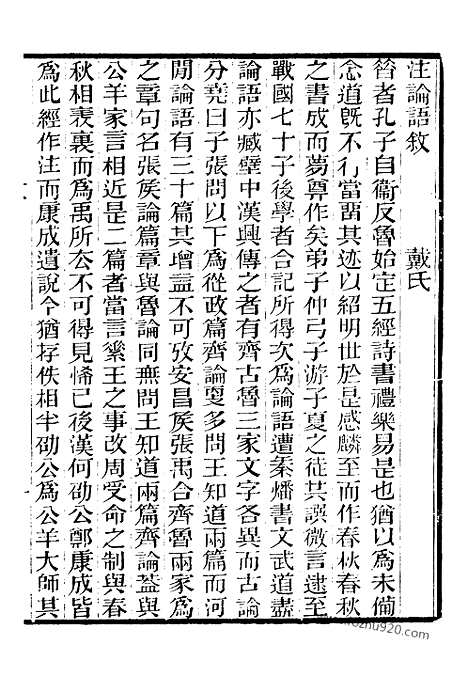 注論語敘 戴氏
昝者孔子自衞反魯始定五經詩書禮樂易是也猶以爲未備
念道旣不行當畱其迹以紹明世於是感麟至而作春秋春秋
之書成而夢尊作矣弟子仲弓子游子夏之徒共譔微言逮至
戰國七十子後學者合記所得次爲論語遭秦燔書文武道盡
論語亦臧壁中漢興傳之者有齊古魯三家文字各異而古論
分堯曰子張問以下爲從政篇齊論更多問王知道兩篇而河
閒論語有三十篇其增益不可攷安昌侯張禹合齊魯兩家爲
之章句名張侯論篇章與魯論同無問王知道兩篇齊論蓋與
公羊家言相近是二篇者當言素王之事改周受命之制與春
秋相表裏而爲禹所去不可得見惜已後漢何劭公鄭康成皆
爲此經作注而康成遺說今猶存佚相半劭公爲公羊大師其